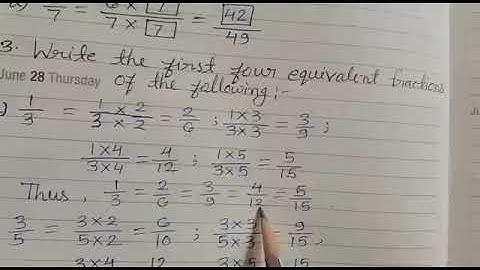 /7 = 6 × 7 / 7 × 7 = 42 / 49
3. Write the first four equivalent fractions
June 28 Thursday
of the following:-
) 1/3 = 1×2/3×2 = 2/6 ; 1×3/3×3 = 3/9 ;
1×4/3×4 = 4/12 ; 1×5/3×5 = 5/15
Thus, 1/3 = 2/6 = 3/9 = 4/12 = 5/15
3/5 = 3×2/5×2 = 6/10 ; 3×3/5×3 = 9/15,
3×4 12 3×5 15